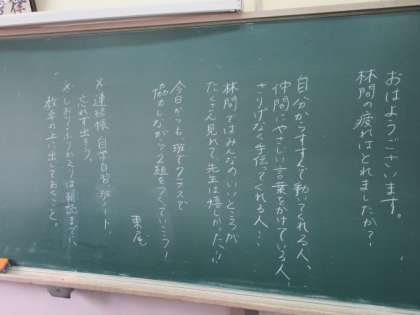 おはようございます。
林間の疲れはとれましたか?
自分からすすんで動いてくれる人、
仲間にやさしい言葉をかけている人、
さりげなく手伝ってくれる人…
林間ではみんなのいいところが
たくさん見れて、先生は嬉しかったい!!
今日からも、班で、クラスで
協力しながら2組をつくっていこう!
※連絡帳、自学自習、班ノート、
忘れず出そう。
※しおり
は朝読までに、
教卓の上に出しておくこと。